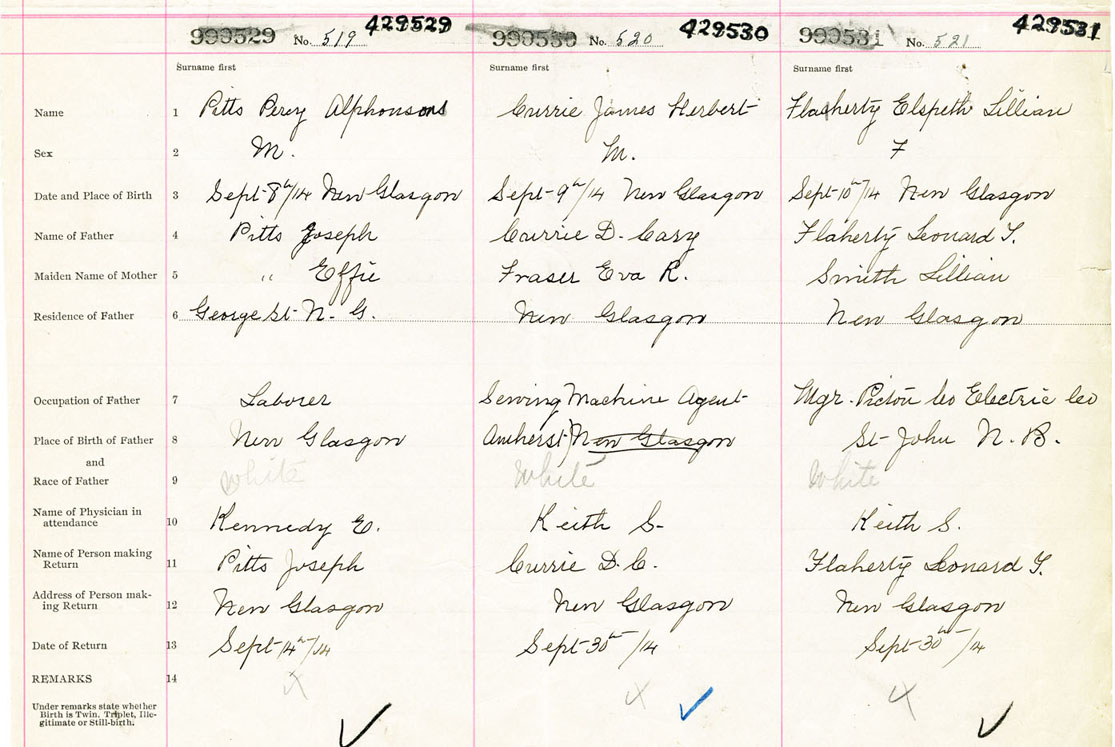 999529 No. 519 429529 999530 No. 520 429530 999531 No. 521 429531
Surname first Surname first Surname first
Name 1 Pitts Percy Alphonsons Currie James Herbert Flaherty Elspeth Lillian
Sex 2 M. M. F
Date and Place of Birth 3 Sept 8th/14 New Glasgow Sept 9th/14 New Glasgow Sept 10th/14 New Glasgow
Name of Father 4 Pitts Joseph Currie D. Cary Flaherty Leonard T.
Maiden Name of Mother 5 " Effie Fraser Eva R. Smith Lillian
Residence of Father 6 George St N. G. New Glasgow New Glasgow
Occupation of Father 7 Laborer Sewing Machine Agent Mgr. Pictou Co Electric Co
Place of Birth of Father 8 New Glasgow Amherst New Glasgow St John N. B.
and
Race of Father 9 White White White
Name of Physician in
attendance 10 Kennedy E. Keith S. Keith S.
Name of Person making
Return 11 Pitts Joseph Currie D. C. Flaherty Leonard T.
Address of Person mak-
ing Return 12 New Glasgow New Glasgow New Glasgow
Date of Return 13 Sept 14th/14 Sept 30th/14 Sept 30th/14
REMARKS 14
Under remarks state whether
Birth is Twin, Triplet, Ille-
gitimate or Still-birth.